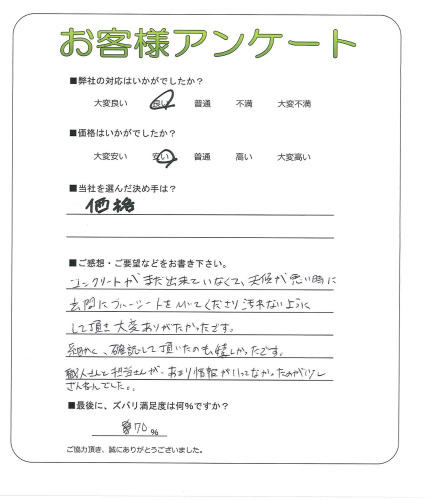 お客様アンケート
■弊社の対応はいかがでしたか？
大変良い 良い 普通 不満 大変不満
■価格はいかがでしたか？
大変安い 安い 普通 高い 大変高い
■当社を選んだ決め手は？
価格
■ご感想・ご要望などをお書き下さい。
コンクリートがまだ出来ていなくて、天候が悪い時に
玄関にブルーシートをひいてくださり汚れないように
して頂き大変ありがたかったです。
細かく、確認して頂いたのも嬉しかったです。
職人さんと担当さんが、あまり情報がいってなかったのが少し
ざんねんでした。
■最後に、ズバリ満足度は何%ですか？
70%
ご協力頂き、誠にありがとうございました。